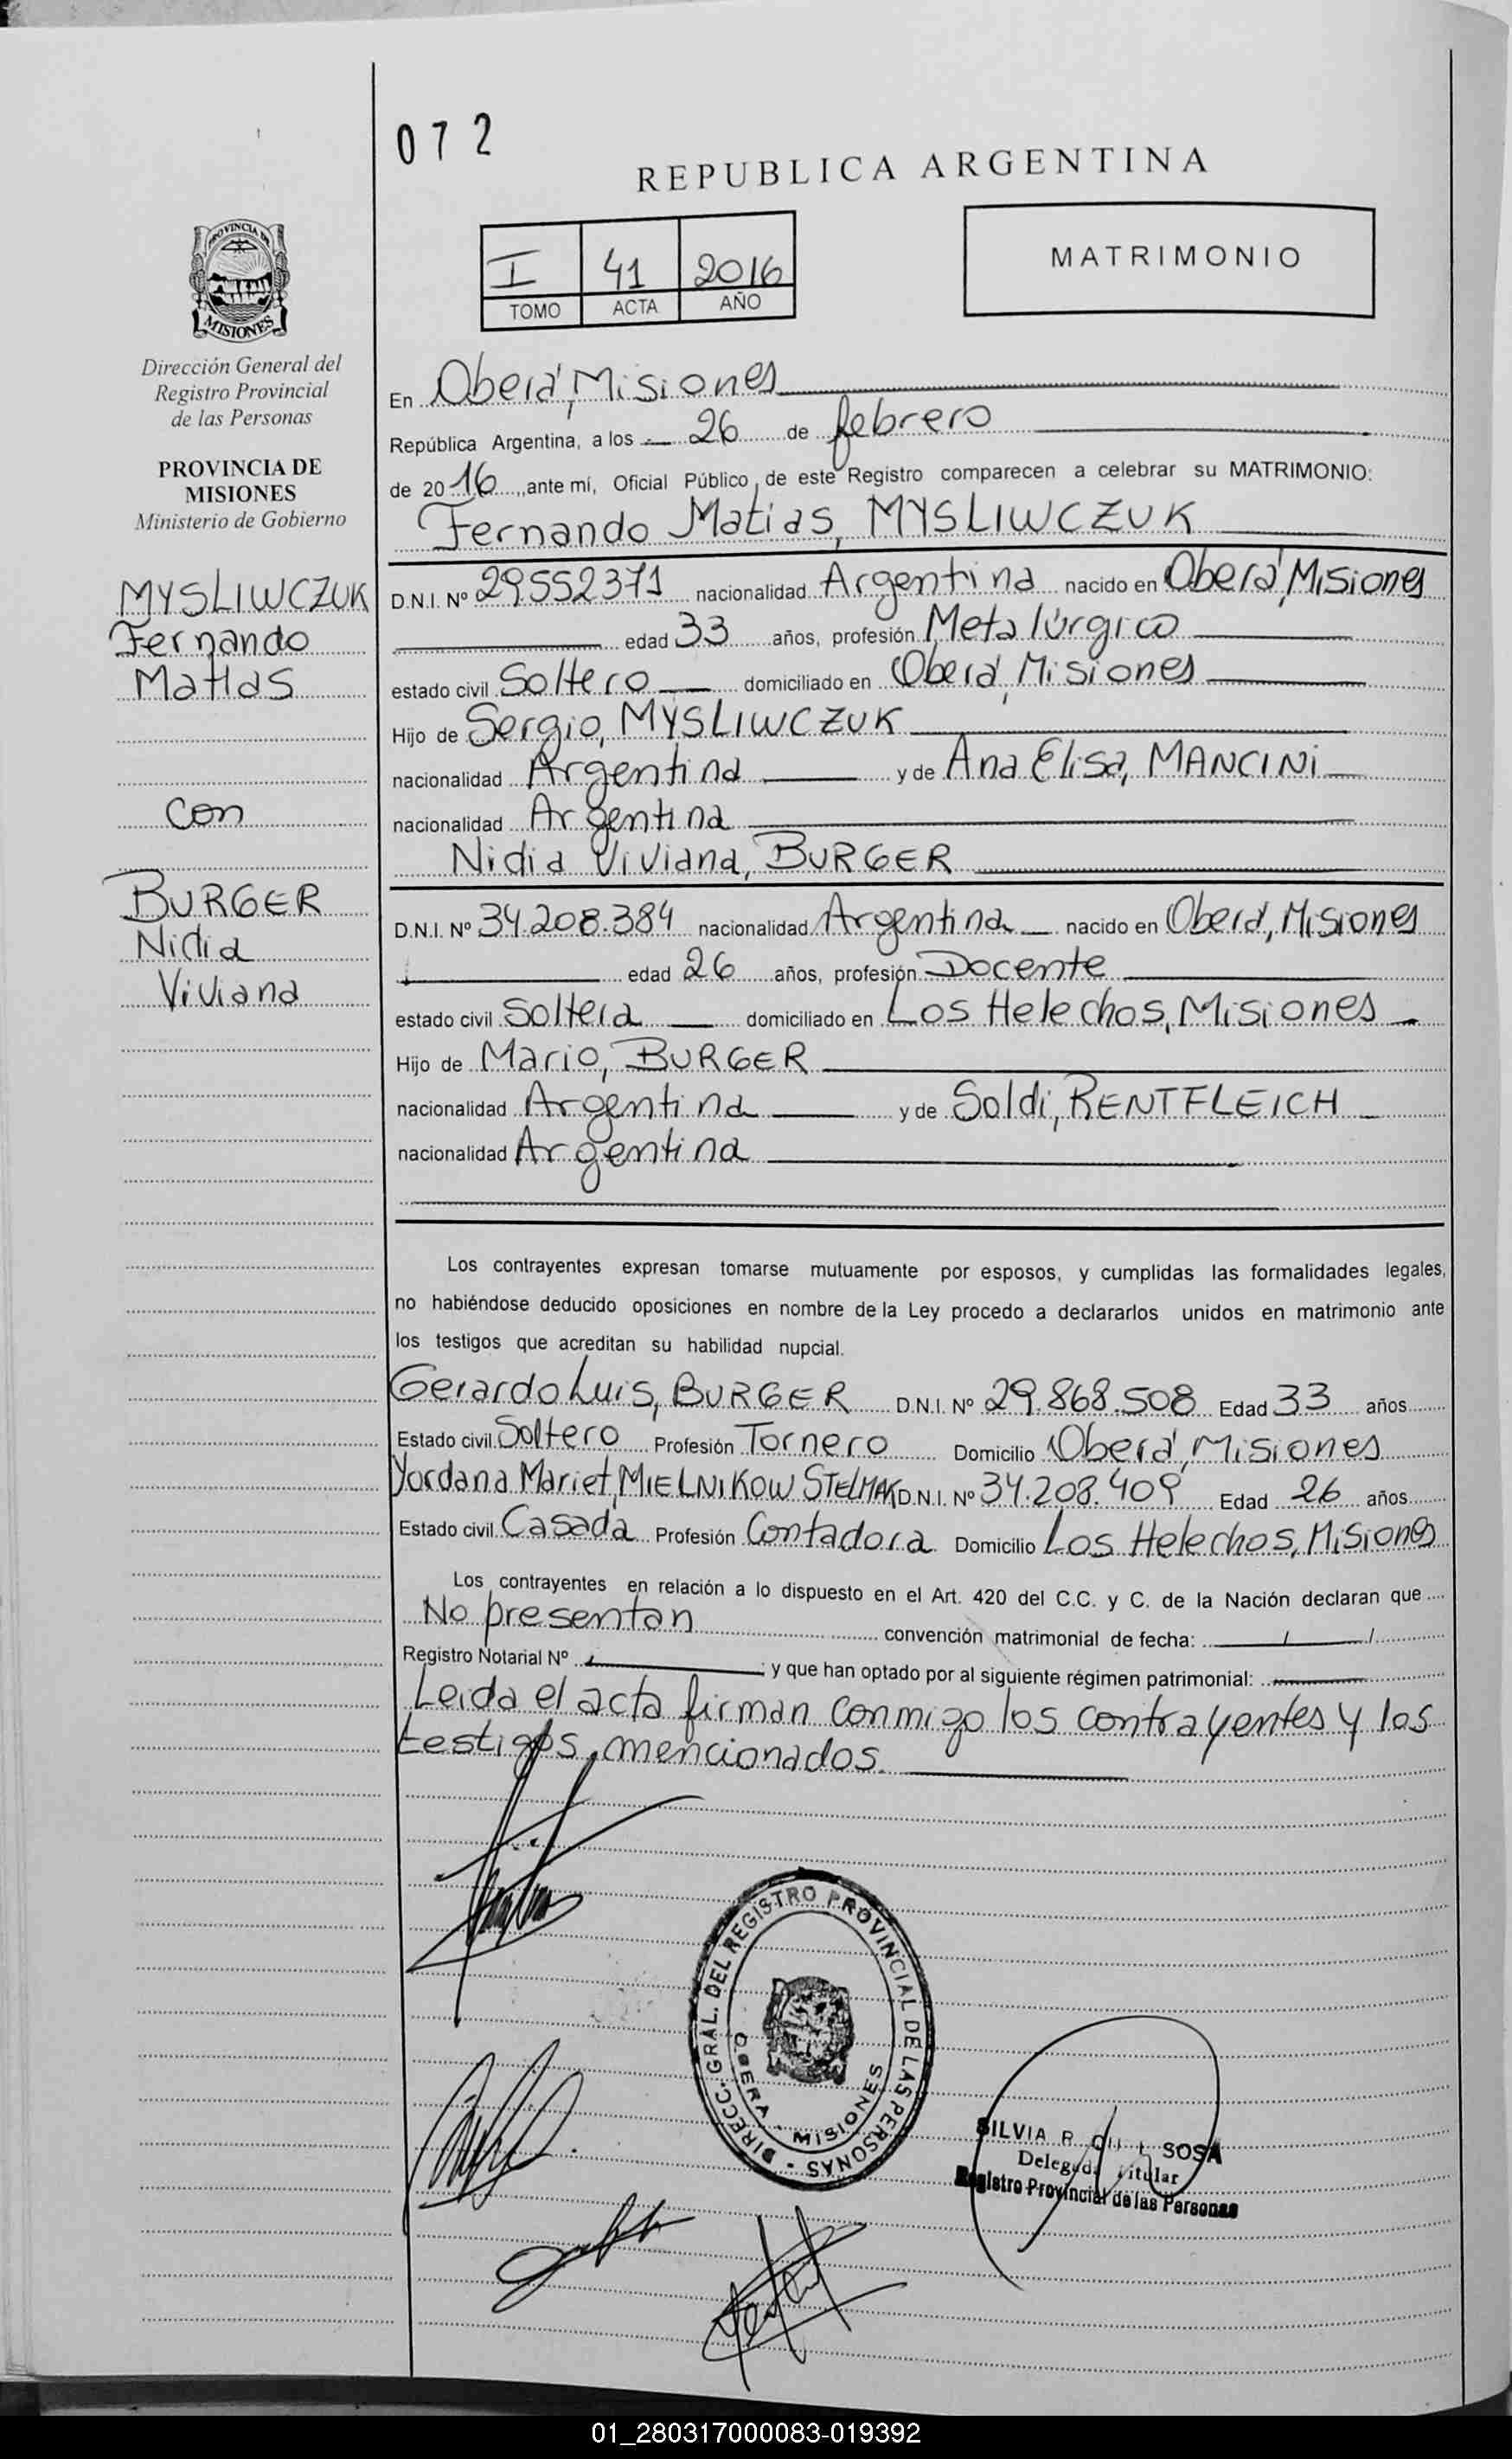 072
REPUBLICA ARGENTINA
I 41 2016
TOMO ACTA AÑO
MATRIMONIO
PROVINCIA DE
MISIONES
Dirección General del
Registro Provincial
de las Personas
PROVINCIA DE
MISIONES
Ministerio de Gobierno
MYSLIWCZUK
Fernando
Matias
con
BURGER
Nidia
Viviana
En Oberá, Misiones
República Argentina, a los 26 de febrero
de 2016, ante mí, Oficial Público, de este Registro comparecen a celebrar su MATRIMONIO:
Fernando Matias, MYSLIWCZUK
D.N.I. Nº 29552371 nacionalidad Argentina nacido en Oberá, Misiones
edad 33 años, profesión Metalúrgico
estado civil Soltero domiciliado en Oberá, Misiones
Hijo de Sergio, MYSLIWCZUK
nacionalidad Argentina y de Ana Elisa, MANCINI
nacionalidad Argentina
Nidia Viviana, BURGER
D.N.I. Nº 34.208.384 nacionalidad Argentina nacido en Oberá, Misiones
edad 26 años, profesión Docente
estado civil Soltera domiciliado en Los Helechos, Misiones
Hijo de Mario, BURGER
nacionalidad Argentina y de Soldi, RENTFLEICH
nacionalidad Argentina
Los contrayentes expresan tomarse mutuamente por esposos, y cumplidas las formalidades legales,
no habiéndose deducido oposiciones en nombre de la Ley procedo a declararlos unidos en matrimonio ante
los testigos que acreditan su habilidad nupcial.
Gerardo Luis, BURGER D.N.I. Nº 29.868.508 Edad 33 años
Estado civil Soltero Profesión Tornero Domicilio Oberá, Misiones
Yordana Mariet, MIELNIKOW STELMAK D.N.I. Nº 34.208.409 Edad 26 años
Estado civil Casada Profesión Contadora Domicilio Los Helechos, Misiones
Los contrayentes en relación a lo dispuesto en el Art. 420 del C.C. y C. de la Nación declaran que
No presentan convención matrimonial de fecha: / /
Registro Notarial Nº ; y que han optado por al siguiente régimen patrimonial:
Leida el acta firman conmigo los contrayentes y los
testigos mencionados.
DIRECC. GRAL. DEL REGISTRO PROVINCIAL DE LAS PERSONAS -
OBERA - MISIONES
SILVIA R. SOSA
Delegada Titular
Registro Provincial de las Personas
01_280317000083-019392